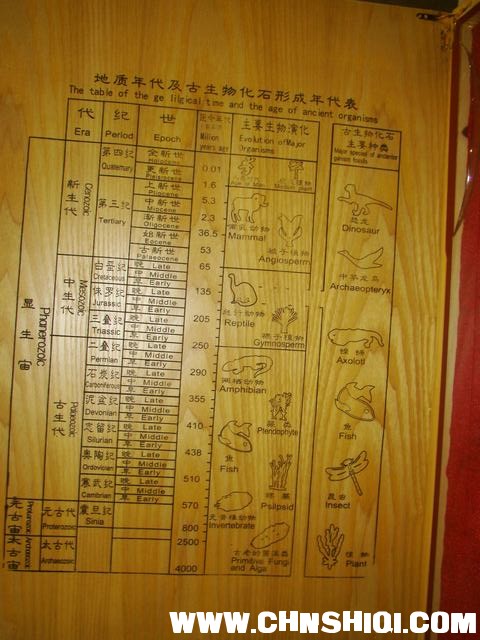 地质年代及古生物化石形成年代表
The table of the ge lilgical time and the age of ancient organisms
代 纪 世 距今年代 主要生物演化 古生物化石
主要种类
Era Period Epoch Million years ago Evolution of Major Organisms
显生宙
Phanerozoic
新生代
Cenozoic
第四纪
Quaternary
全新世
Holocene
0.01
更新世
Pleistocene
1.6
第三纪
Tertiary
上新世
Pliocene
5.3
中新世
Miocene
2.3
渐新世
Oligocene
36.5
始新世
Eocene
53
古新世
Palaeocene
65
中生代
Mesozoic
白垩纪
Cretaceous
晚 Late
中 Middle
早 Early
135
侏罗纪
Jurassic
晚 Late
中 Middle
早 Early
205
三叠纪
Triassic
晚 Late
中 Middle
早 Early
250
古生代
二叠纪
Permian
晚 Late
中 Middle
早 Early
290
石炭纪
Carboniferous
晚 Late
中 Middle
早 Early
355
泥盆纪
Devonian
晚 Late
中 Middle
早 Early
410
志留纪
Silurian
晚 Late
中 Middle
早 Early
438
奥陶纪
Ordovician
晚 Late
中 Middle
早 Early
510
寒武纪
Cambrian
晚 Late
中 Middle
早 Early
570
元古宙
元古代
Proterozoic
震旦纪
Sinia
800
2500
太古宙
太古代
Archaeozoic
4000
植物
哺乳动物
Mammal
被子植物
Angiosperm
爬行动物
Reptile
裸子植物
Gymnosperm
两栖动物
Amphibian
蕨类
鱼
Fish
Psilpsid
无脊椎动物
Invertebrate
古老的菌藻类
Primitive Fungi
and Alga
恐龙
Dinosaur
中华龙鸟
Archaeopteryx
蝾螈
Axolotl
鱼
Fish
昆虫
Insect
植物
Plant
WWW.CHNSHIQI.COM